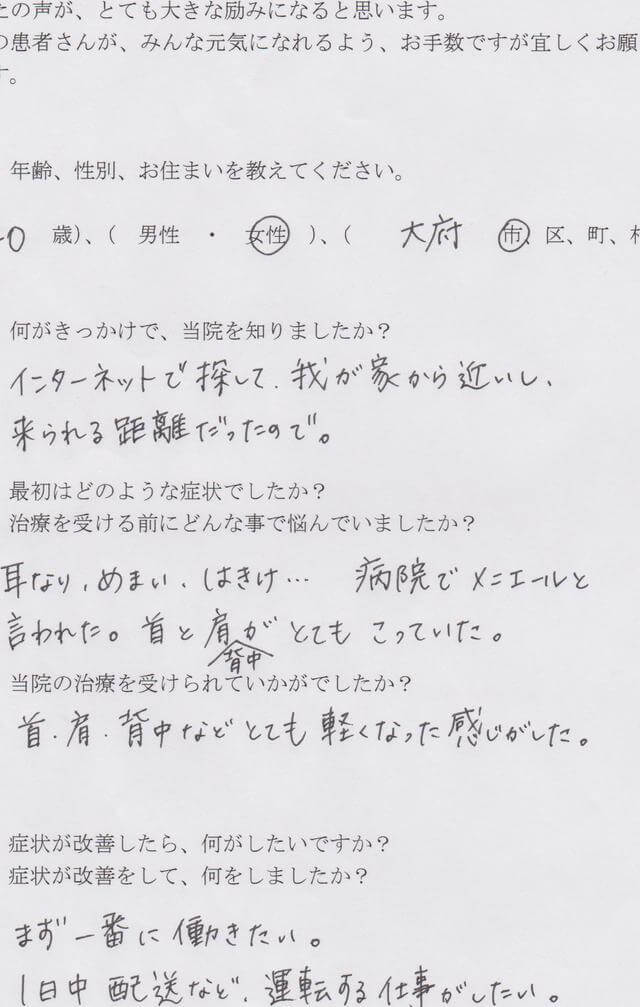 たの声が、とても大きな励みになると思います。
の患者さんが、みんな元気になれるよう、お手数ですが宜しくお願
す。
年齢、性別、お住まいを教えてください。
0 歳)、( 男性 ・ 女性 )、( 大府 市、区、町、村
何がきっかけで、当院を知りましたか?
インターネットで探して、我が家から近いし、
来られる距離だったので。
最初はどのような症状でしたか?
治療を受ける前にどんな事で悩んでいましたか?
耳なり、めまい、はきけ… 病院でメニエールと
言われた。首と肩がとてもこっていた。
背中
当院の治療を受けられていかがでしたか?
首・肩・背中などとても軽くなった感じがした。
症状が改善したら、何がしたいですか?
症状が改善をして、何をしましたか?
まず一番に働きたい。
1日中配送など、運転する仕事がしたい。